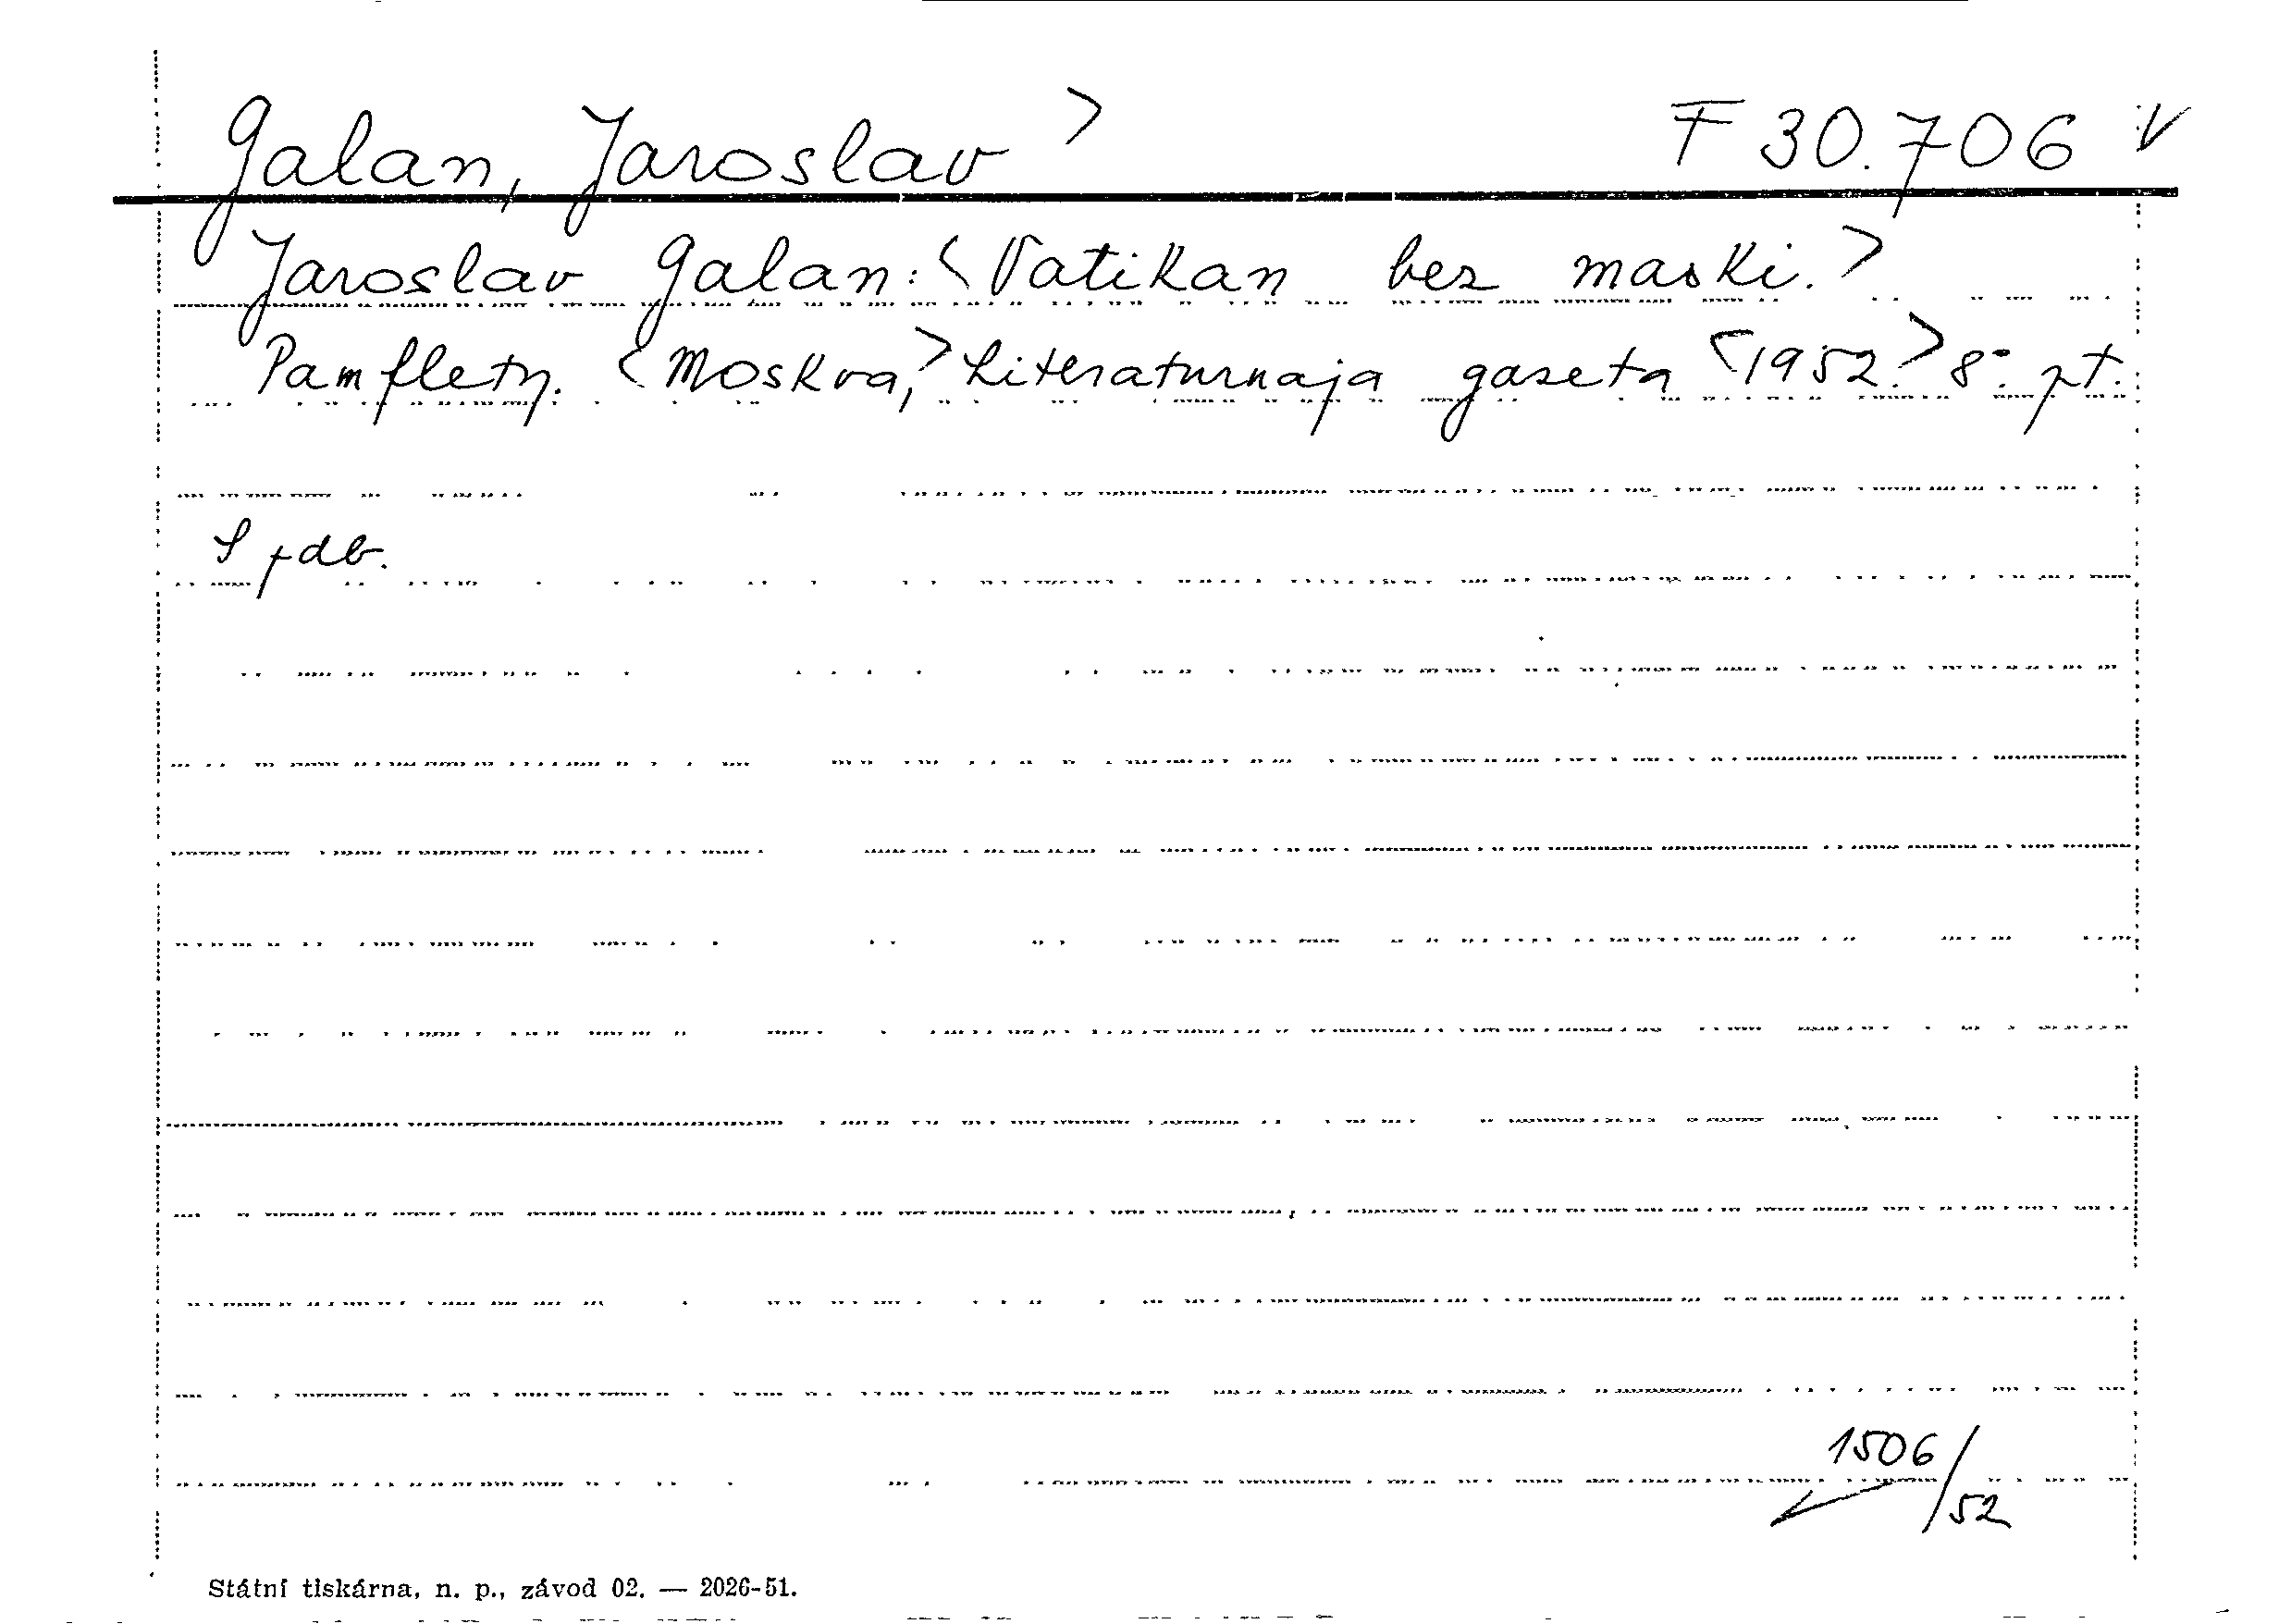 Galan, Jaroslav > F 30.706 V
Jaroslav Galan: <Vatikan bez maski.>
Pamflety. <Moskva,> Literaturnaja gazeta <1952.> 8°. pt.
S pdb.
1506/52
Státní tiskárna, n. p., závod 02. — 2026-51.